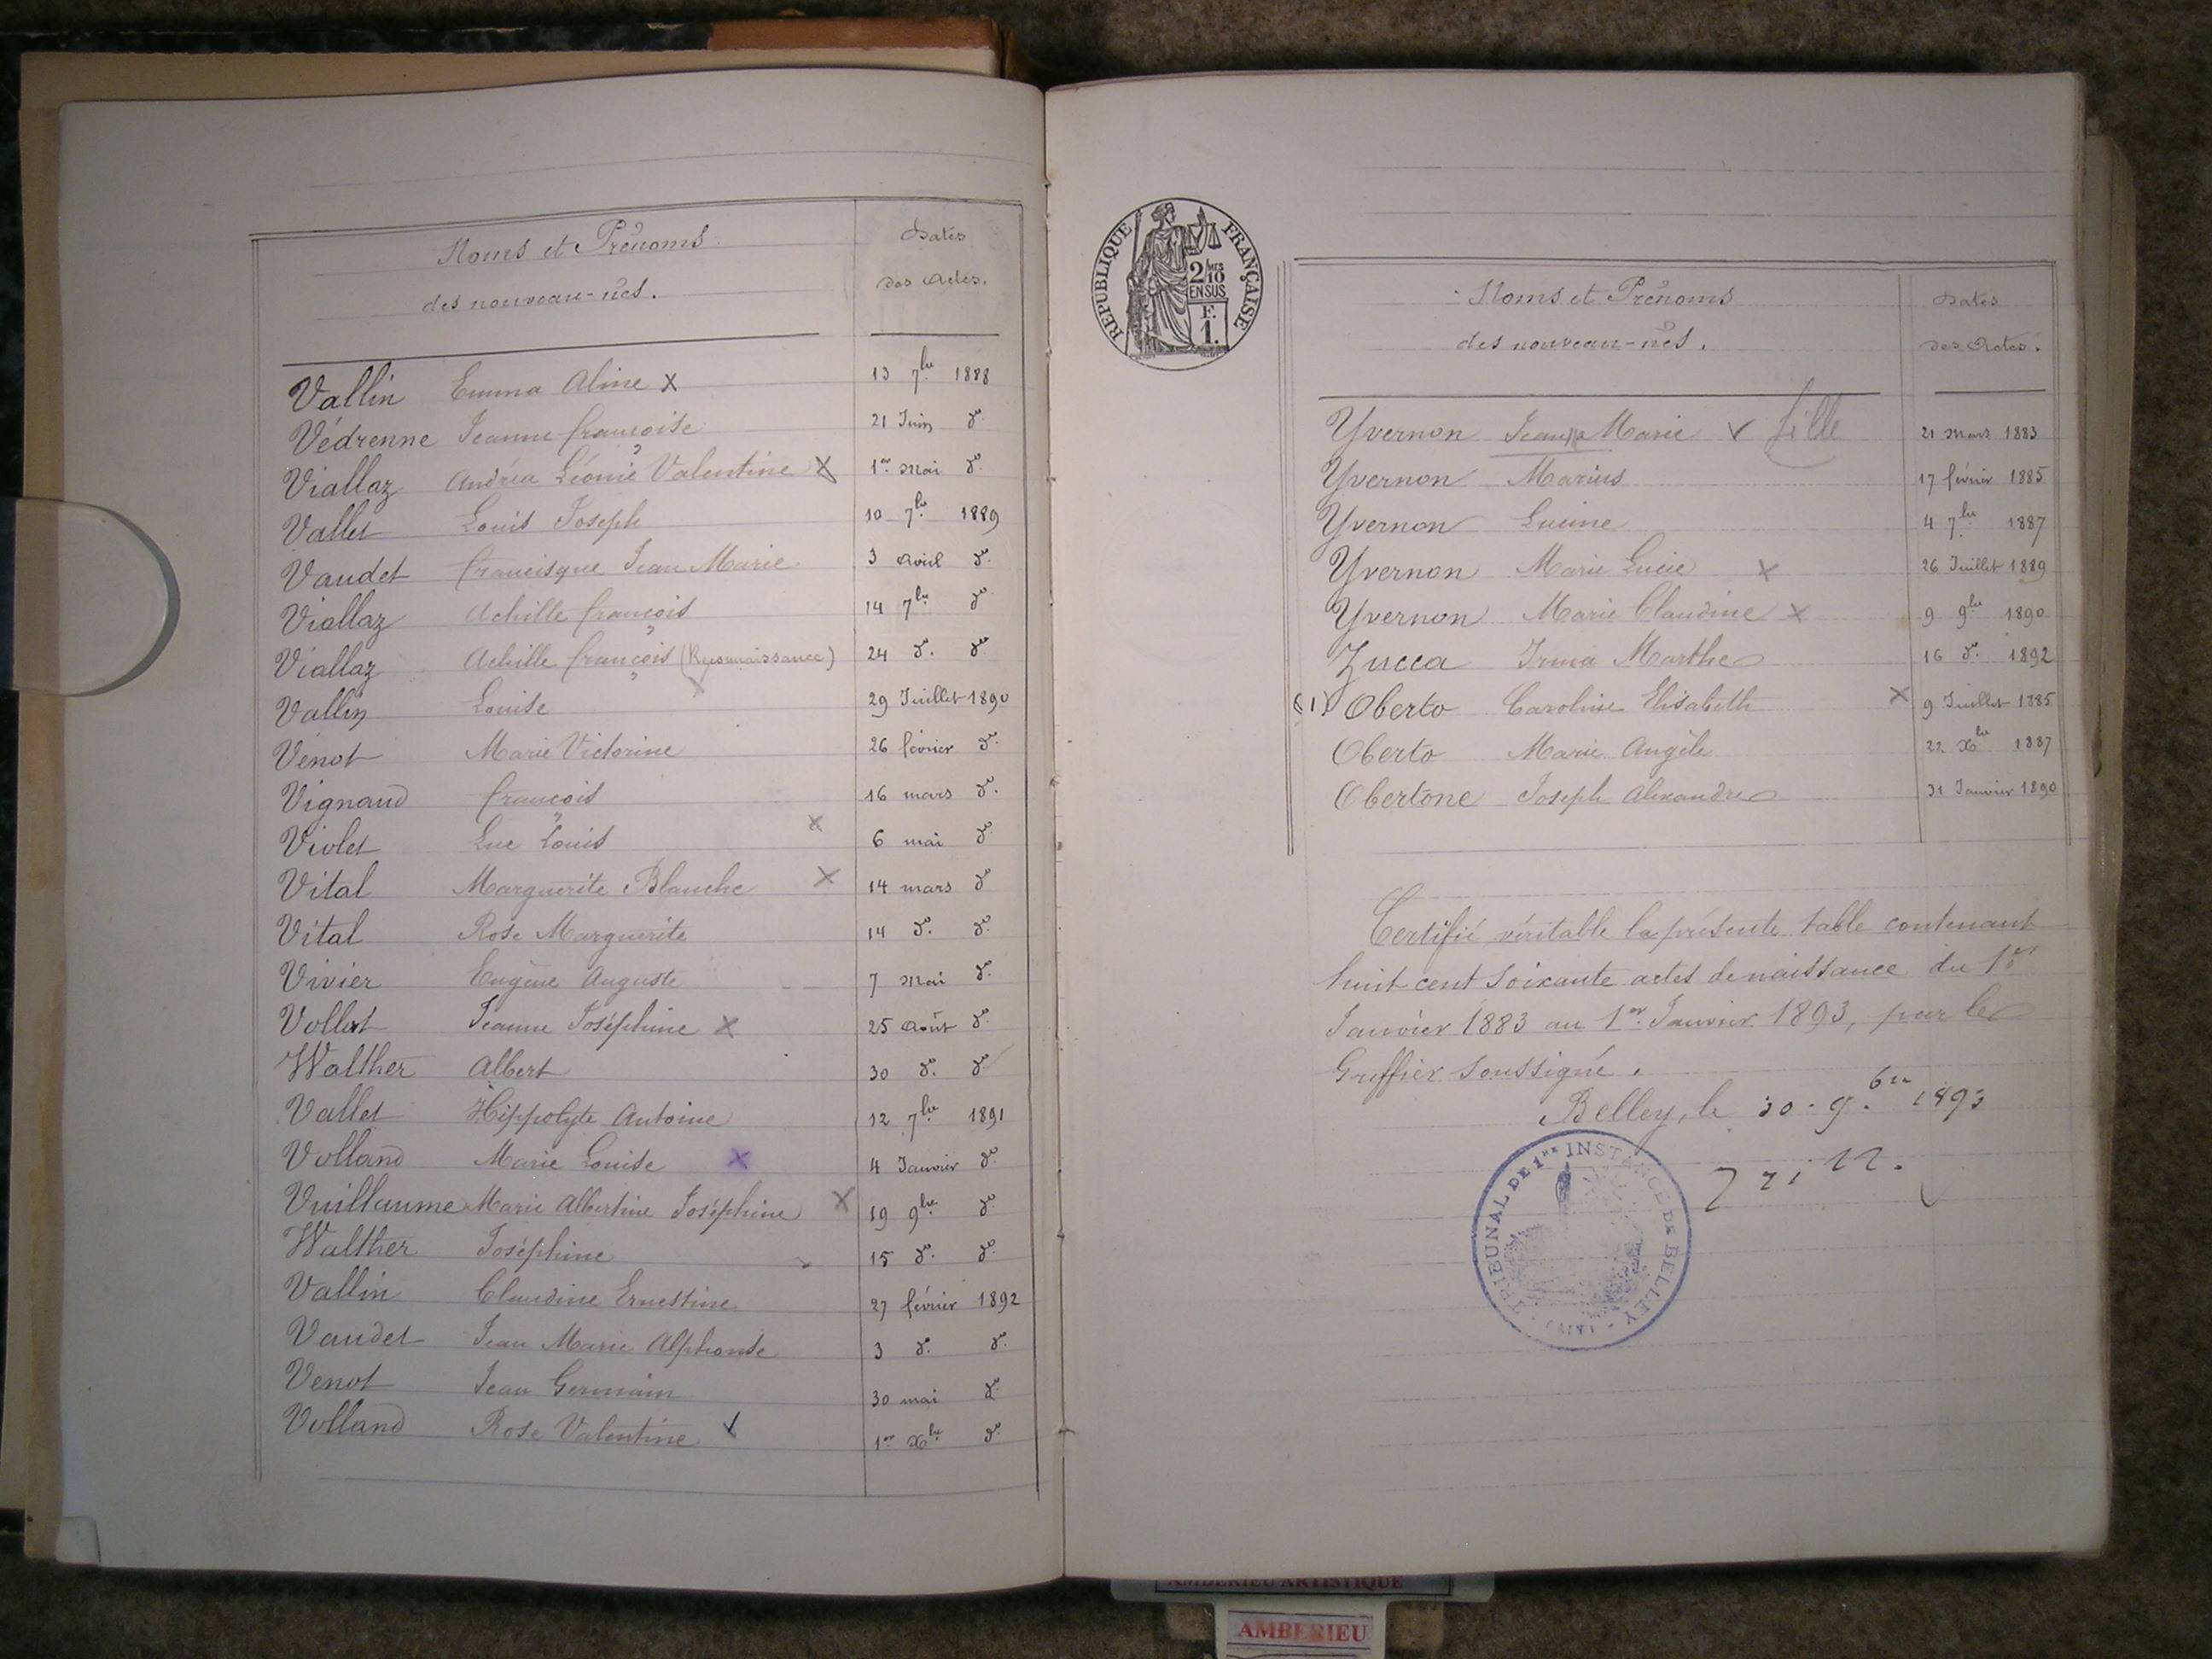 Noms et Prénoms
des nouveau-nés.
Dates
des Actes.
Vallin Emma Aline x 13 7bre 1888
Védrenne Jeanne françoise 21 Juin do
Viallaz Andréa Léonie Valentine x 1er mai do
Vallet Louis Joseph 10 7bre 1889
Vaudet francisque Jean Marie 3 Avril do
Viallaz Achille françois 14 7bre do
Viallaz Achille françois (Reconnaissance) 24 do. do
Vallin Louise 29 Juillet 1890
Venot Marie Victorine 26 février do
Vignaud françois 16 mars do.
Violet Luc Louis x 6 mai do
Vital Marguerite Blanche x 14 mars do
Vital Rose Marguerite 14 do. do.
Vivier Eugène Auguste 7 Mai do.
Vollat Jeanne Joséphine x 25 Août do.
Walther Albert 30 do. do
Vallet Hippolyte Antoine 12 7bre 1891
Volland Marie Louise x 4 Janvier do.
Vuillaume Marie Albertine Joséphine x 19 9bre do
Walther Joséphine 15 do. do.
Vallin Claudine Ernestine 27 février 1892
Vaudet Jean Marie Alphonse 3 do. do.
Venot Jean Germain 30 mai do
Volland Rose Valentine x 1er Xbre do
RÉPUBLIQUE FRANÇAISE
2/10 MES
EN SUS
F.
1.
Noms et Prénoms
des nouveau-nés.
Dates
des Actes.
Yvernon Marie v fille 21 mars 1883
Yvernon Marius 17 février 1885
Yvernon Lucine 4 7bre 1887
Yvernon Marie Lucie x 26 Juillet 1889
Yvernon Marie Claudine x 9 9bre 1890
Zucca Irma Marthe 16 do. 1892
(1) Oberto Caroline Elisabeth x 9 Juillet 1885
Oberto Marie Angèle 22 Xbre 1887
Obertone Joseph Alexandre 31 Janvier 1890
Certifié véritable la présente table contenant
huit cent soixante actes de naissance du 1er
Janvier 1883 au 1er Janvier 1893, par le
Greffier soussigné.
Belley, le 30 - 9bre 1893
TRIBUNAL DE 1RE INSTANCE DE BELLEY
AMBERIEU ARTISTIQUE
AMBERIEU